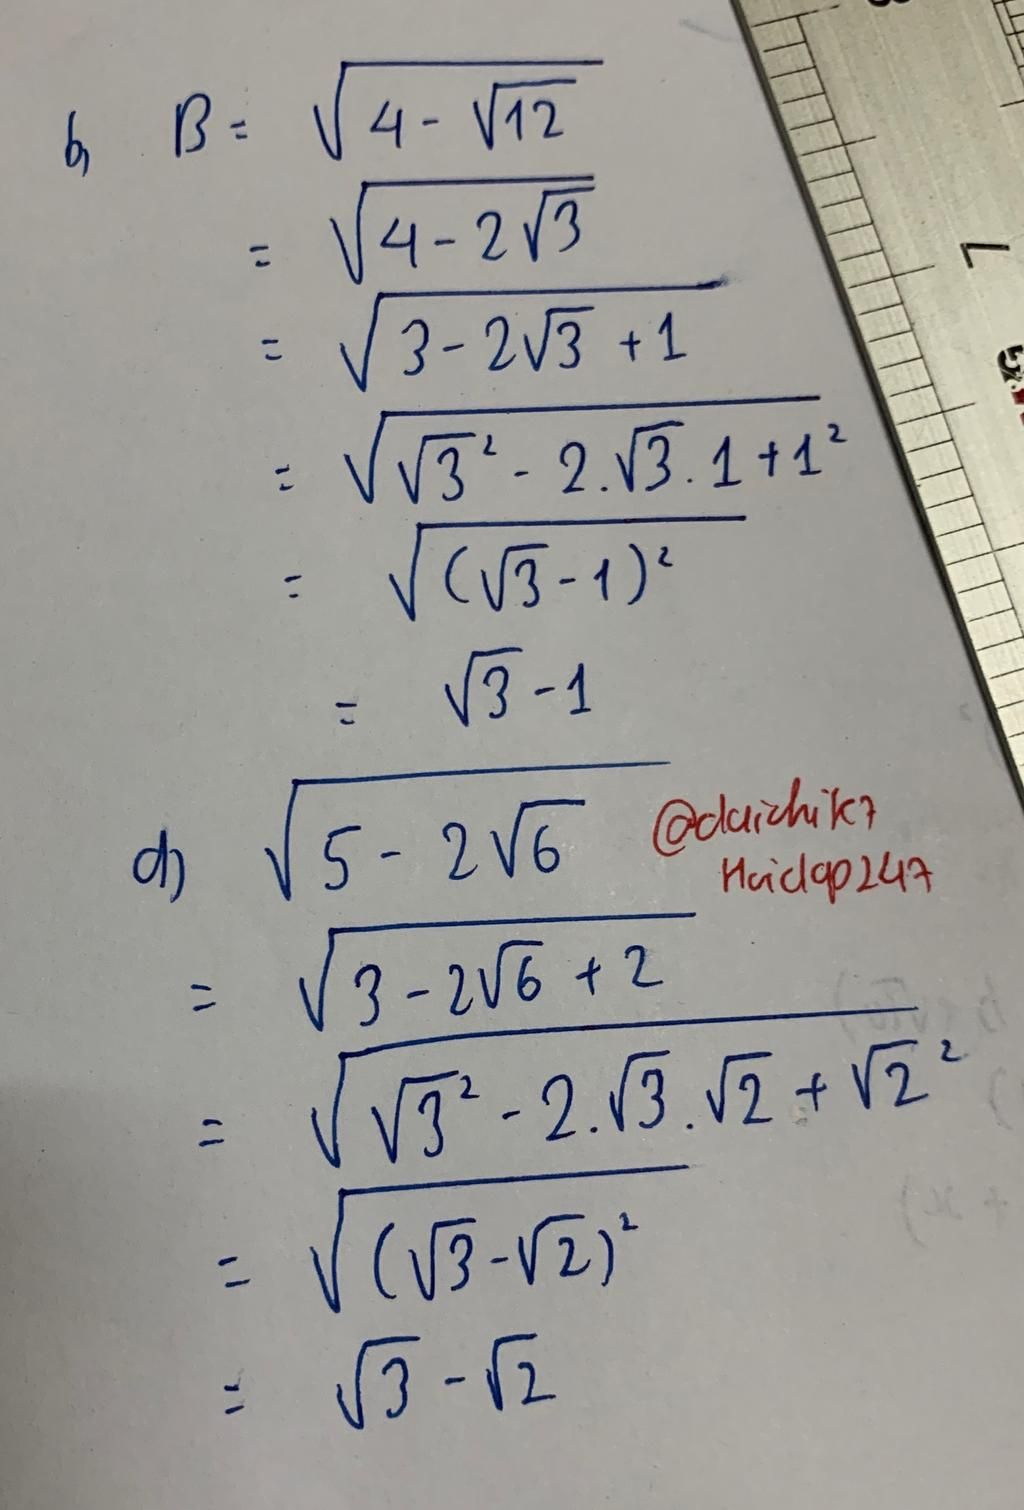 b, B = √(4 - √12)
= √(4 - 2√3)
= √(3 - 2√3 + 1)
= √(√3² - 2.√3.1 + 1²)
= √((√3 - 1)²)
= √3 - 1
d) √(5 - 2√6)
@daichik7
Hoidap247
= √(3 - 2√6 + 2)
= √(√3² - 2.√3.√2 + √2²)
= √((√3 - √2)²)
= √3 - √2
7